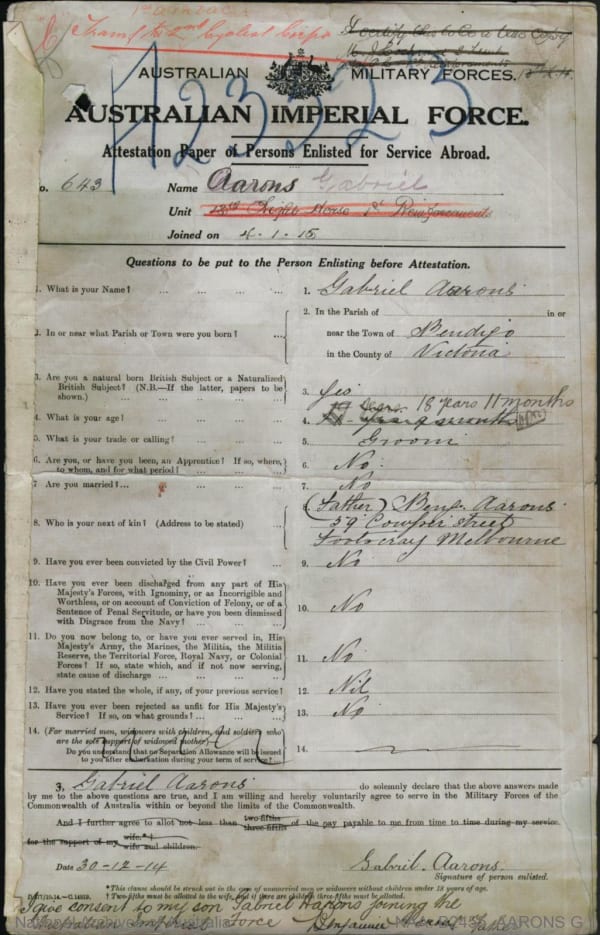 1st Anzac
Transf to 2nd Cyclist Corps
I certify this to be a true copy
AUSTRALIAN MILITARY FORCES.
AUSTRALIAN IMPERIAL FORCE.
A2323
Attestation Paper of Persons Enlisted for Service Abroad.
No. 643 Name Aarons Gabriel
Unit 13th Light Horse 1st Reinforcements
Joined on 4.1.15
Questions to be put to the Person Enlisting before Attestation.
1. What is your Name? ... ... ... ... 1. Gabriel Aarons
2. In or near what Parish or Town were you born? ... 2. In the Parish of in or
near the Town of Bendigo
in the County of Victoria
3. Are you a natural born British Subject or a Naturalized
British Subject? (N.B.—If the latter, papers to be
shown.) ... ... ... ... 3. Yes
4. What is your age? ... ... ... ... 4. 18 years 11 months
5. What is your trade or calling? ... ... ... 5. Groom
6. Are you, or have you been, an Apprentice? If so, where,
to whom, and for what period? ... ... 6. No.
7. Are you married? ... ... ... ... 7. No
8. Who is your next of kin? (Address to be stated) ... 8. (Father) Benj. Aarons
59 Cowper street
Footscray Melbourne
9. Have you ever been convicted by the Civil Power? ... 9. No
10. Have you ever been discharged from any part of His
Majesty's Forces, with Ignominy, or as Incorrigible and
Worthless, or on account of Conviction of Felony, or of a
Sentence of Penal Servitude, or have you been dismissed
with Disgrace from the Navy? ... ... 10. No
11. Do you now belong to, or have you ever served in, His
Majesty's Army, the Marines, the Militia, the Militia
Reserve, the Territorial Force, Royal Navy, or Colonial
Forces? If so, state which, and if not now serving,
state cause of discharge ... ... ... 11. No
12. Have you stated the whole, if any, of your previous service? 12. Nil
13. Have you ever been rejected as unfit for His Majesty's
Service? If so, on what grounds? ... ... 13. No
14. (For married men, widowers with children, and soldiers who
are the sole support of widowed mother)
Do you understand that no Separation Allowance will be issued
to you after embarkation during your term of service? 14.
I, Gabriel Aarons do solemnly declare that the above answers made
by me to the above questions are true, and I am willing and hereby voluntarily agree to serve in the Military Forces of the
Commonwealth of Australia within or beyond the limits of the Commonwealth.
And I further agree to allot not less than two-fifths three-fifths of the pay payable to me from time to time during my service
for the support of my wife.*† wife and children.
Date 30-12-14 Gabriel. Aarons.
Signature of person enlisted.
*This clause should be struck out in the case of unmarried men or widowers without children under 18 years of age.
† Two-fifths must be allotted to the wife, and if there are children three-fifths must be allotted.
I give consent to my son Gabriel Aarons joining the
Australian Imperial Force Benjamin Aarons Father
National Archives of Australia NAA: B2455, AARONS G